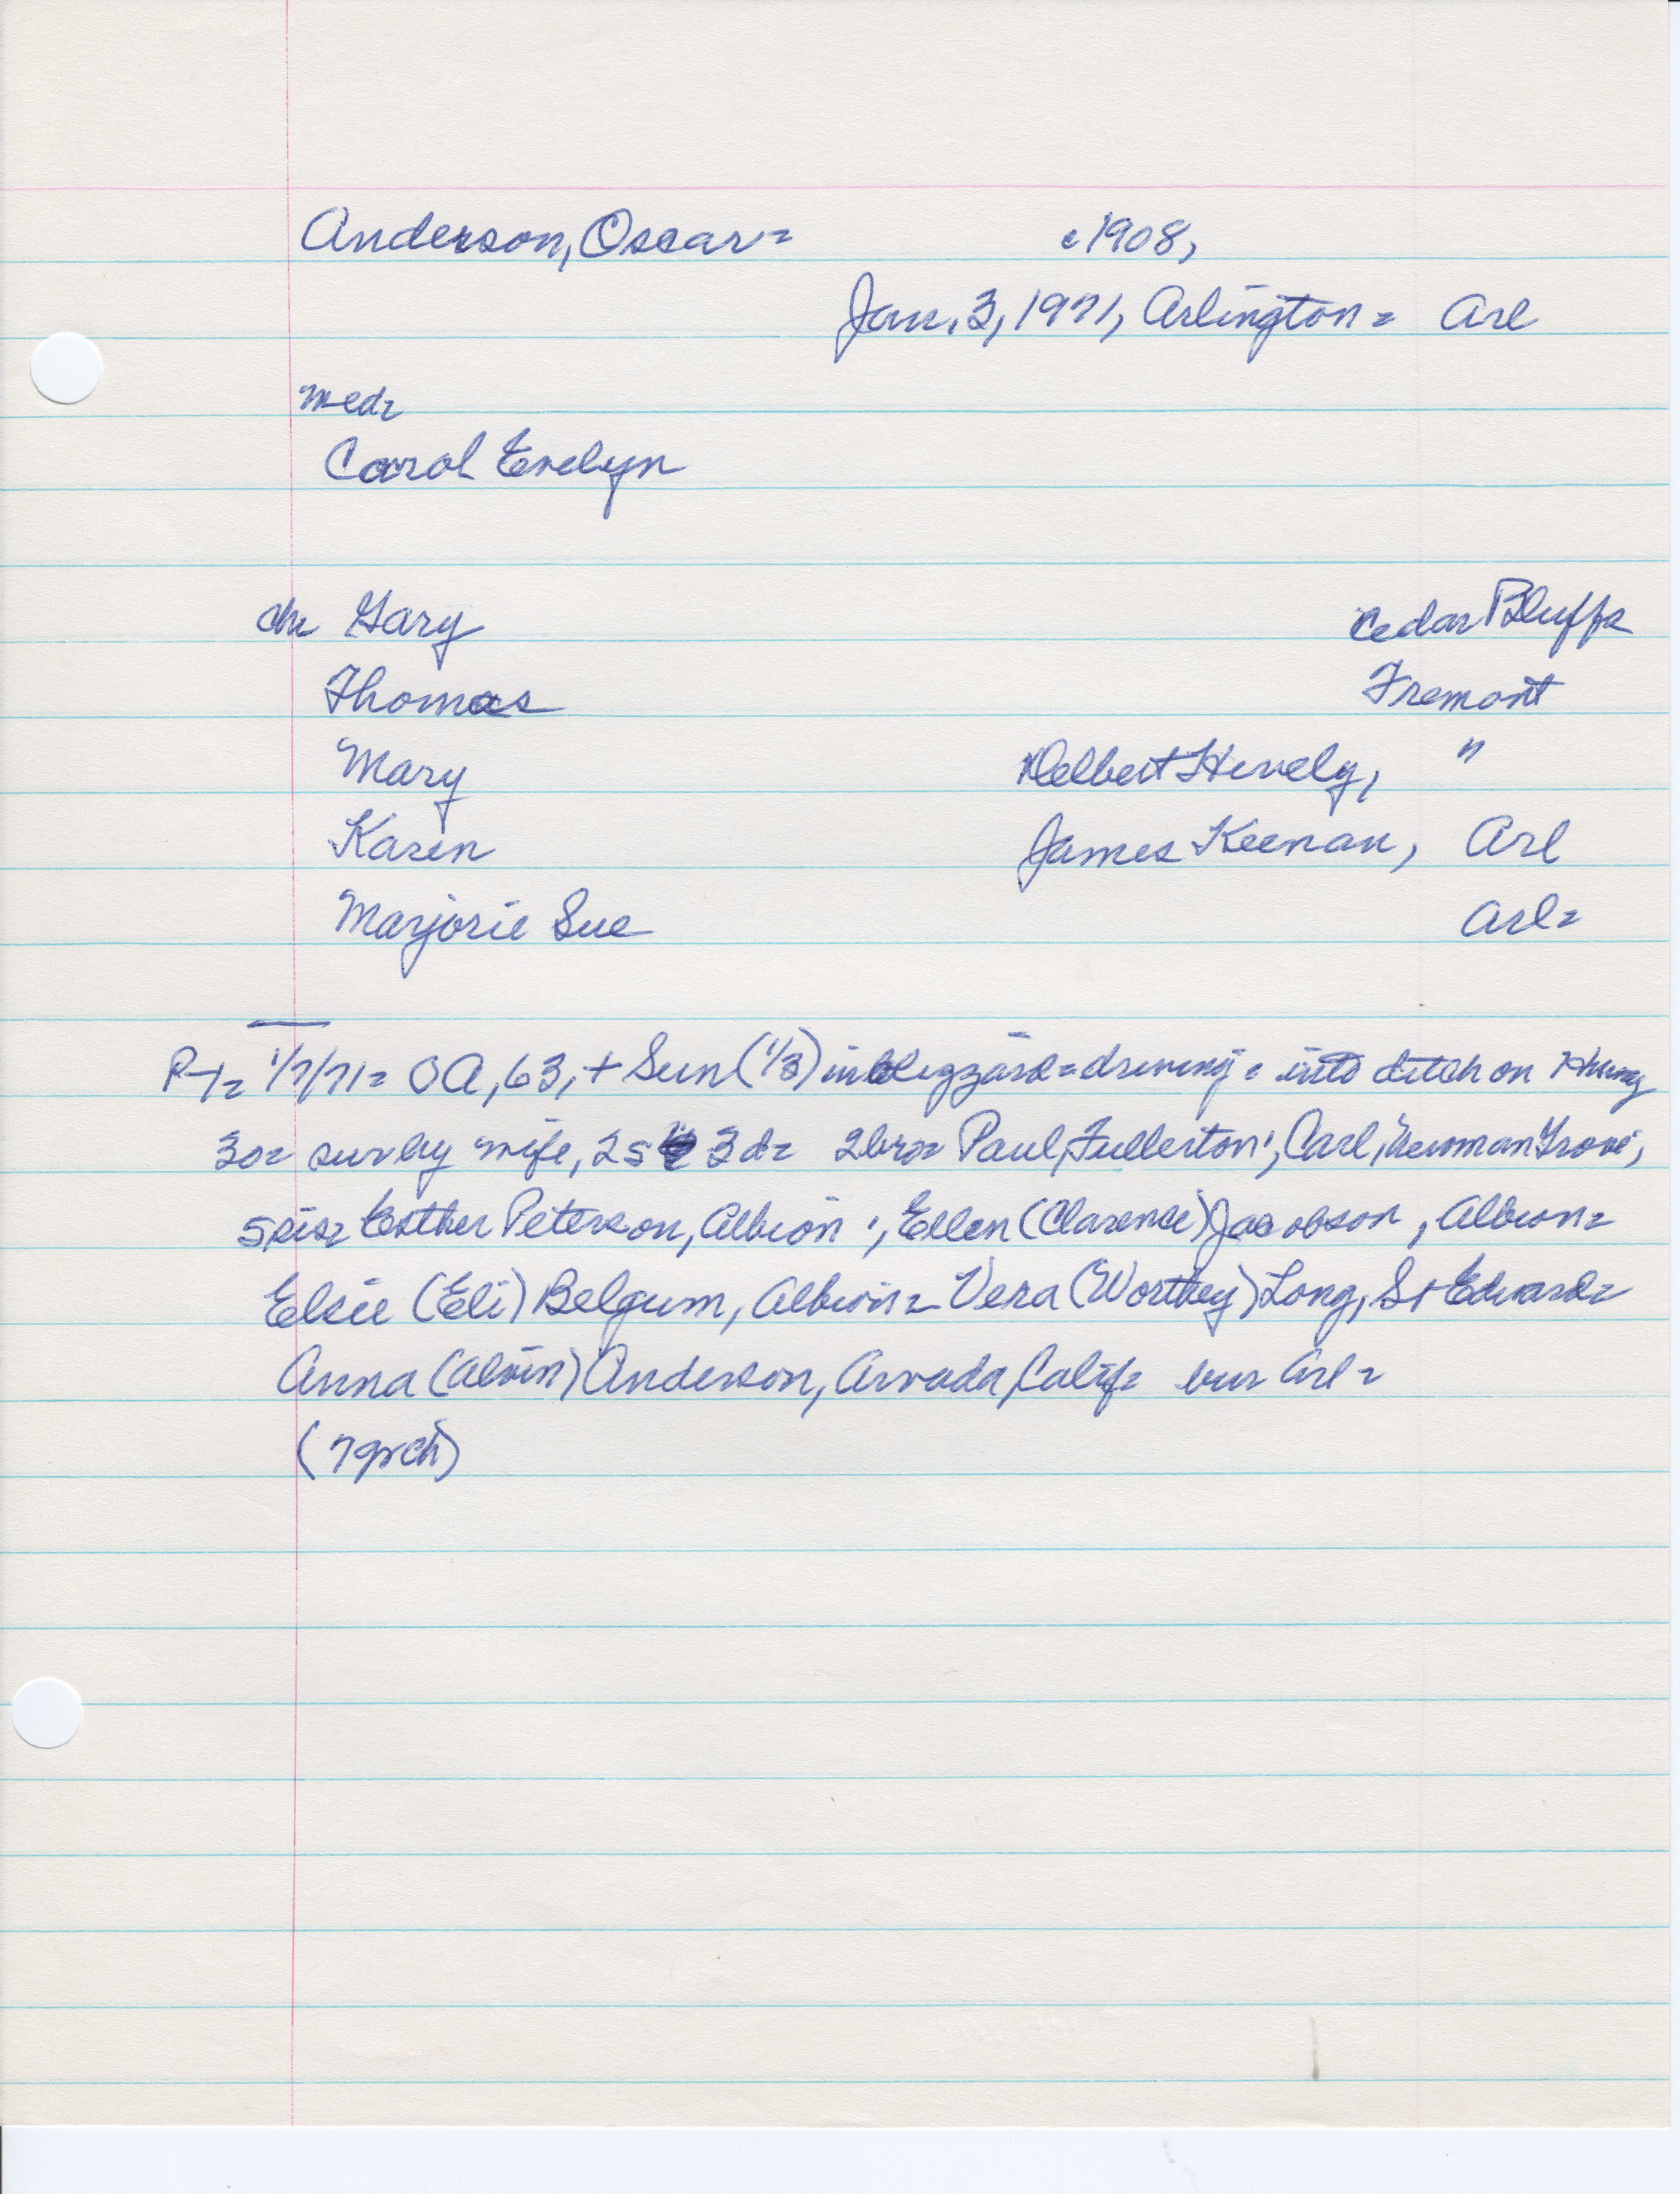 Anderson, Oscar= c1908,
Jan. 3, 1971, Arlington= Arl
med=
Carol Evelyn
ch Gary Cedar Bluffs
Thomas Fremont
Mary Delbert Hively, "
Karen James Keenan, Arl
Marjorie Sue Arl=
P-T= 1/7/71= OA, 63, + Sun (1/3) in blizzard=driving= into ditch on Hiway
30= sur by wife, 2s 3d= 2bro= Paul, Fullerton; Carl, Newman Grove,
5sis= Esther Peterson, Albion; Ellen (Clarence) Jacobson, Albion=
Elsie (Eli) Belgum, Albion= Vera (Worthey) Long, St Edward=
Anna (Alvin) Anderson, Arvada, Calif= bur Arl=
(7grch)